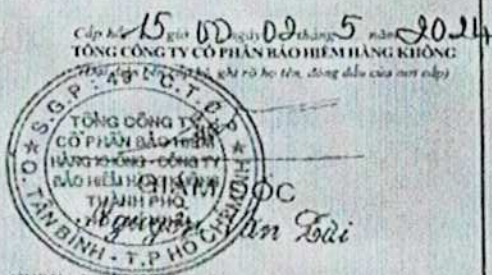 Cấp hồi 15 giờ 00 ngày 02 tháng 5 năm 2024
TỔNG CÔNG TY CỔ PHẦN BẢO HIỂM HÀNG KHÔNG
(Đại diện bên cấp kê, ghi rõ họ tên, đóng dấu của nơi cấp)
TỔNG CÔNG TY
CỔ PHẦN BẢO HIỂM
HÀNG KHÔNG - CÔNG TY
BẢO HIỂM HÀNG KHÔNG
THÀNH PHỐ
GIÁM ĐỐC
Nguyễn Văn Đài
Q. TÂN BÌNH - T.P HỒ CHÍ MINH